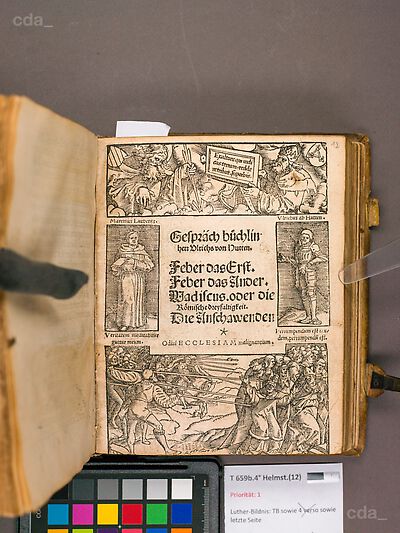 cda_
cda_
12
Exaltare qui iudi
cas terram, redde
Martinus Luther.
Ulrichus ab Hutten.
Gespräch büchlin
herr Ulrichs von Hutten.
Feber das Erst.
Feber das Ander.
Wadiscus. oder die
Römische dreyfaltigkeit.
Die Anschawenden
Veritatem meditabitur
guttur meum.
Perrumpendum est tan
dem, perrumpendum est.
Odivi ECCLESIAM malignantium.
T 659b.4° Helmst.(12)
Priorität: 1
Luther-Bildnis: TB sowie 4 verso sowie
letzte Seite
cda_
cda_